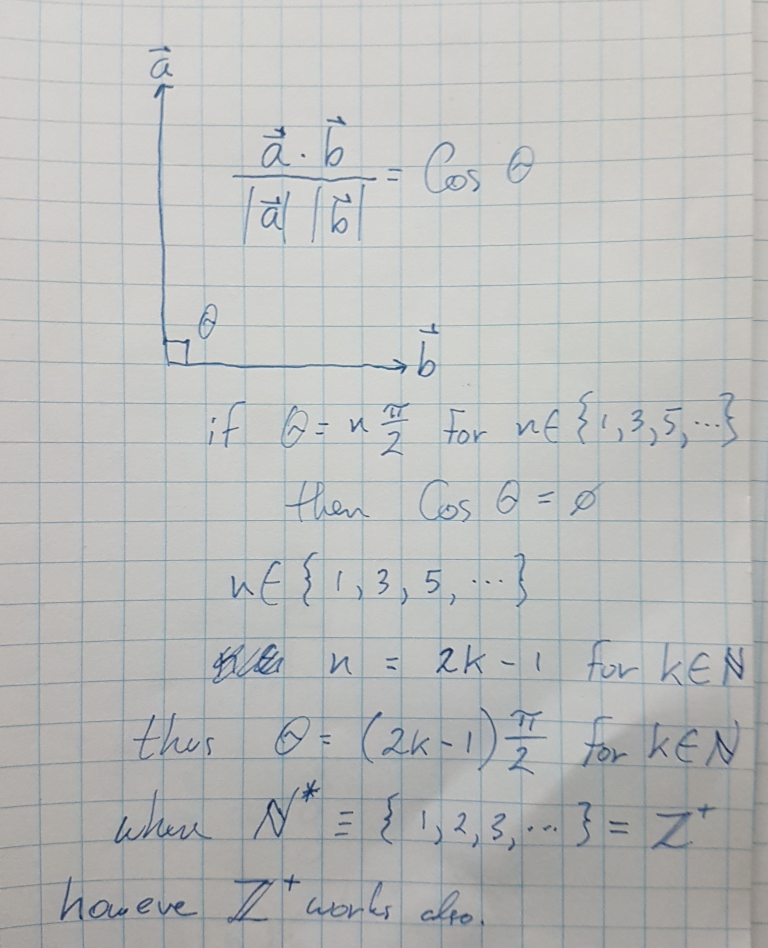 a⃗
a⃗ · b⃗ / |a⃗| |b⃗| = Cos θ
θ
b⃗
if θ = n π/2 for n ∈ {1, 3, 5, ...}
then Cos θ = ∅
n ∈ {1, 3, 5, ...}
n = 2k - 1 for k ∈ ℕ
thus θ = (2k - 1) π/2 for k ∈ ℕ
where ℕ* ≡ {1, 2, 3, ...} = ℤ⁺
howeve ℤ⁺ works also.